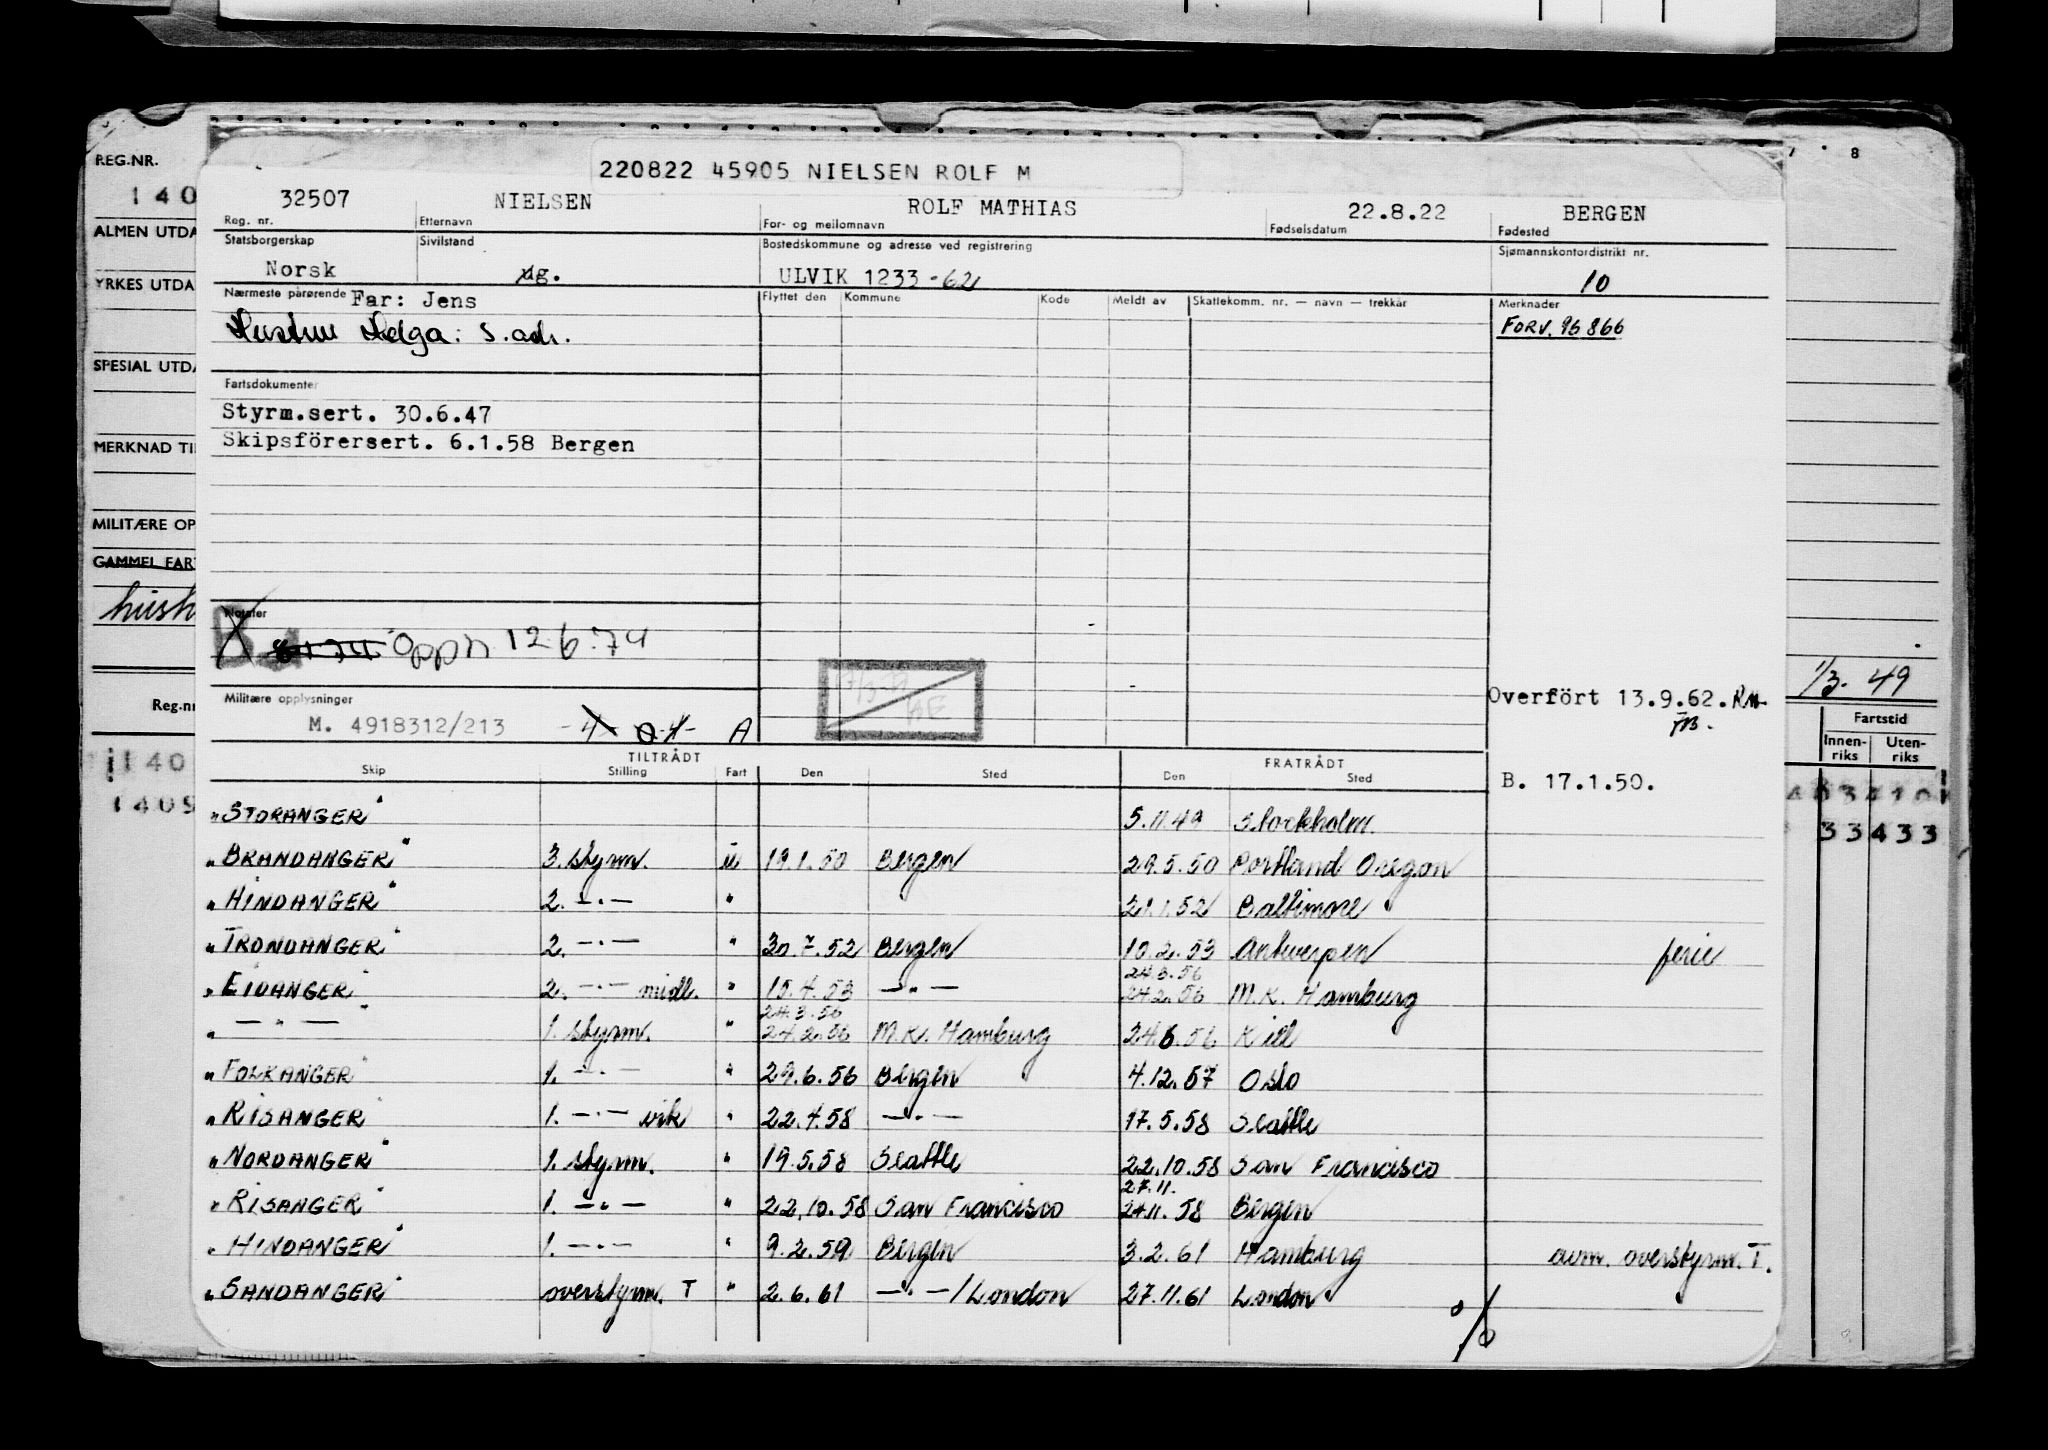 220822 45905 NIELSEN ROLF M
7 8
REG.NR.
140
32507 NIELSEN ROLF MATHIAS 22.8.22 BERGEN
Reg. nr. Etternavn For- og mellomnavn Fødselsdatum Fødested
ALMEN UTDA
Statsborgerskap Sivilstand Bostedskommune og adresse ved registrering Sjømannskontordistrikt nr.
Norsk ug. ULVIK 1233 -62 10
YRKES UTDA
Nærmeste pårørende Far: Jens Flyttet den Kommune Kode Meldt av Skattekomm. nr. — navn — trekkår Merknader
Hustru Helga: s. adr. FORV. 96866
SPESIAL UTDA
Fartsdokumenter
Styrm.sert. 30.6.47
Skipsförersert. 6.1.58 Bergen
MERKNAD TI
MILITÆRE OP
GAMMEL FAR
hush
Notater
Oppn. 12.6.74
1/3. 49
Militære opplysninger Overfört 13.9.62.
Reg.nr
M. 4918312/213 -4- A
Fartstid
Innen-riks Uten-riks
TILTRÅDT FRATRÅDT
Skip Stilling Fart Den Sted Den Sted
B. 17.1.50.
140
1409
33433
"STORANGER" 5.11.49 Stockholm.
"BRANDANGER" 3. styrm. u 19.1.50 Bergen 29.5.50 Portland Oregon
"HINDANGER" 2. —"— " 21.1.52 Baltimore
"TRONDANGER" 2. —"— " 30.7.52 Bergen 10.2.53 Antwerpen ferie
24.3.56
"EIDANGER" 2. —"— midl. " 15.4.53 —"— 24.2.56 M.K. Hamburg
24.3.56
" —"— " 1. styrm. " 24.2.56 M.K. Hamburg 24.6.56 Kiel
"FOLKANGER" 1. —"— " 29.6.56 Bergen 4.12.57 Oslo
"RISANGER" 1. —"— vik " 22.4.58 —"— 17.5.58 Seattle
"NORDANGER" 1. styrm. " 19.5.58 Seattle 22.10.58 San Francisco
27.11.
"RISANGER" 1. —"— " 22.10.58 San Francisco 24.11.58 Bergen
"HINDANGER" 1. —"— " 9.2.59 Bergen 3.2.61 Hamburg avm. overstyrm. T.
"SANDANGER" overstyrm. T " 2.6.61 —"— / London 27.11.61 London
%